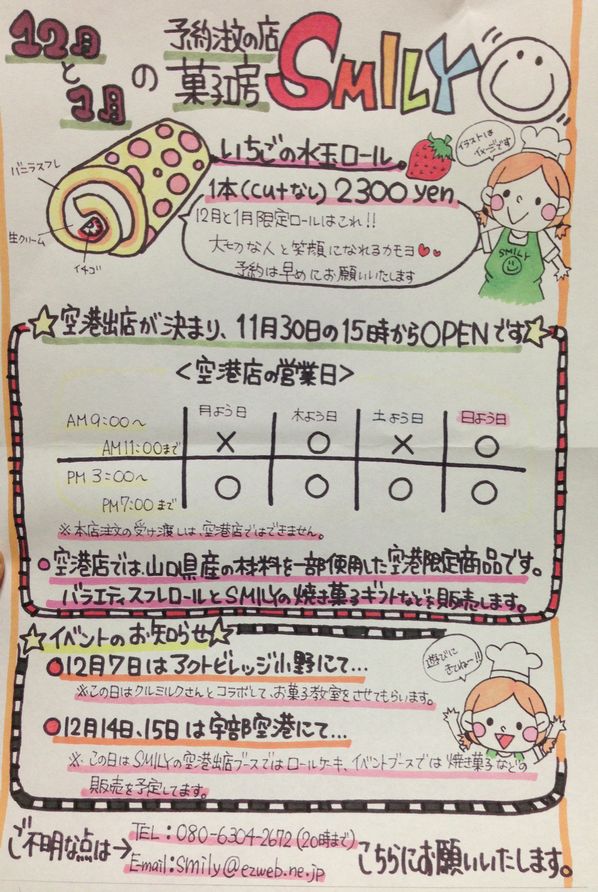 12月と1月の
予約注文の店
菓子房 SMILY
いちごの水玉ロール。
1本(cutなし) 2300yen.
バニラスフレ
生クリーム
イチゴ
イラストは
イメージです
12月と1月限定ロールはこれ!!
大切な人と笑顔になれるカモヨ
予約は早めにお願いいたします
SMILY
空港出店が決まり、11月30日の15時からOPENです
<空港店の営業日>
月よう日 木よう日 土よう日 日よう日
AM 9:00〜
AM11:00まで × ○ × ○
PM 3:00〜
PM7:00まで ○ ○ ○ ○
※本店注文の受け渡しは、空港店ではできません。
●空港店では、山口県産の材料を一部使用した空港限定商品です。
バラエティスフレロールとSMILYの焼き菓子ギフトなどを販売します。
イベントのお知らせ
●12月7日はアクトビレッジ小野にて...
※この日はクルミルクさんとコラボして、お菓子教室をさせてもらいます。
遊びに
きてねー!!
●12月14日、15日は宇部空港にて...
※この日はSMILYの空港出店ブースではロールケーキ、イベントブースでは焼き菓子などの
販売を予定してます。
ご不明な点は→
TEL:080-6304-2672(20時まで)
E-mail:smily@ezweb.ne.jp
こちらにお願いいたします。